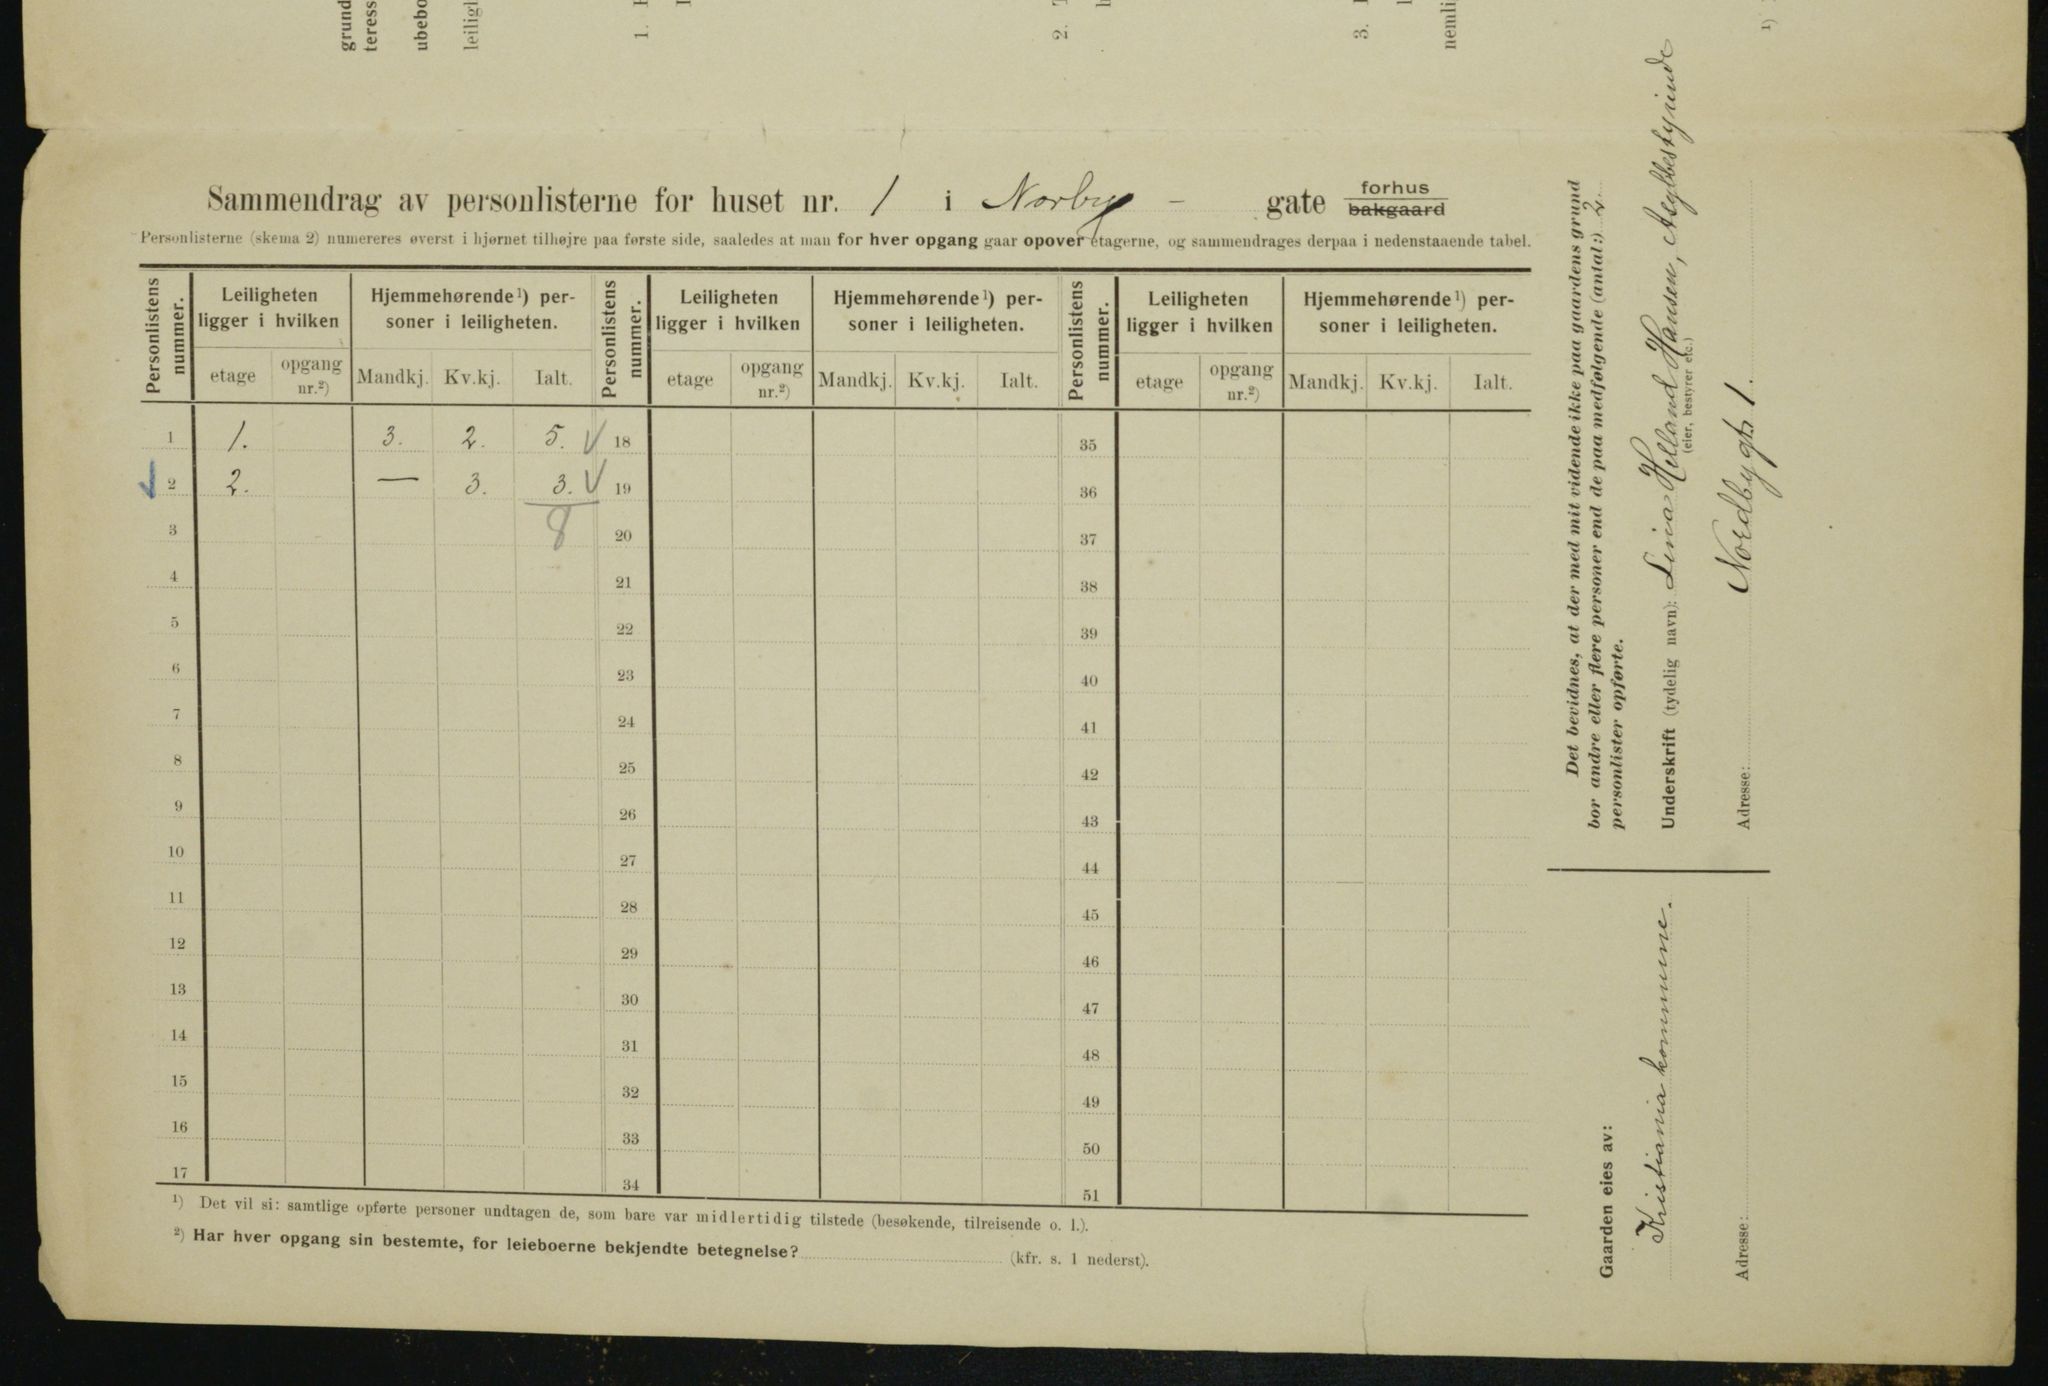 grund
teress
ubebo
leiligh
1.
2.
3.
nemli
1)
Sammendrag av personlisterne for huset nr. 1 i Norby - gate forhus bakgaard
Personlisterne (skema 2) numereres øverst i hjørnet tilhøjre paa første side, saaledes at man for hver opgang gaar opover etagerne, og sammendrages derpaa i nedenstaaende tabel.
Personlistens nummer. Leiligheten ligger i hvilken Hjemmehørende 1) personer i leiligheten. Personlistens nummer. Leiligheten ligger i hvilken Hjemmehørende 1) personer i leiligheten. Personlistens nummer. Leiligheten ligger i hvilken Hjemmehørende 1) personer i leiligheten.
etage opgang nr.2) Mandkj. Kv.kj. Ialt. etage opgang nr.2) Mandkj. Kv.kj. Ialt. etage opgang nr.2) Mandkj. Kv.kj. Ialt.
1 1. 3. 2. 5. 18 35
2 2. — 3. 3. 19 36
3 8 20 37
4 21 38
5 22 39
6 23 40
7 24 41
8 25 42
9 26 43
10 27 44
11 28 45
12 29 46
13 30 47
14 31 48
15 32 49
16 33 50
17 34 51
1) Det vil si: samtlige opførte personer undtagen de, som bare var midlertidig tilstede (besøkende, tilreisende o. l.).
2) Har hver opgang sin bestemte, for leieboerne bekjendte betegnelse? (kfr. s. 1 nederst).
Det bevidnes, at der med mit vidende ikke paa gaardens grund
bor andre eller flere personer end de paa medfølgende (antal:) 2
personlister opførte.
Underskrift (tydelig navn): Lina Helland Hansen, Asylbestyrinde
(eier, bestyrer etc.)
Adresse: Nordbygt. 1.
Gaarden eies av:
Kristiania kommune.
Adresse: